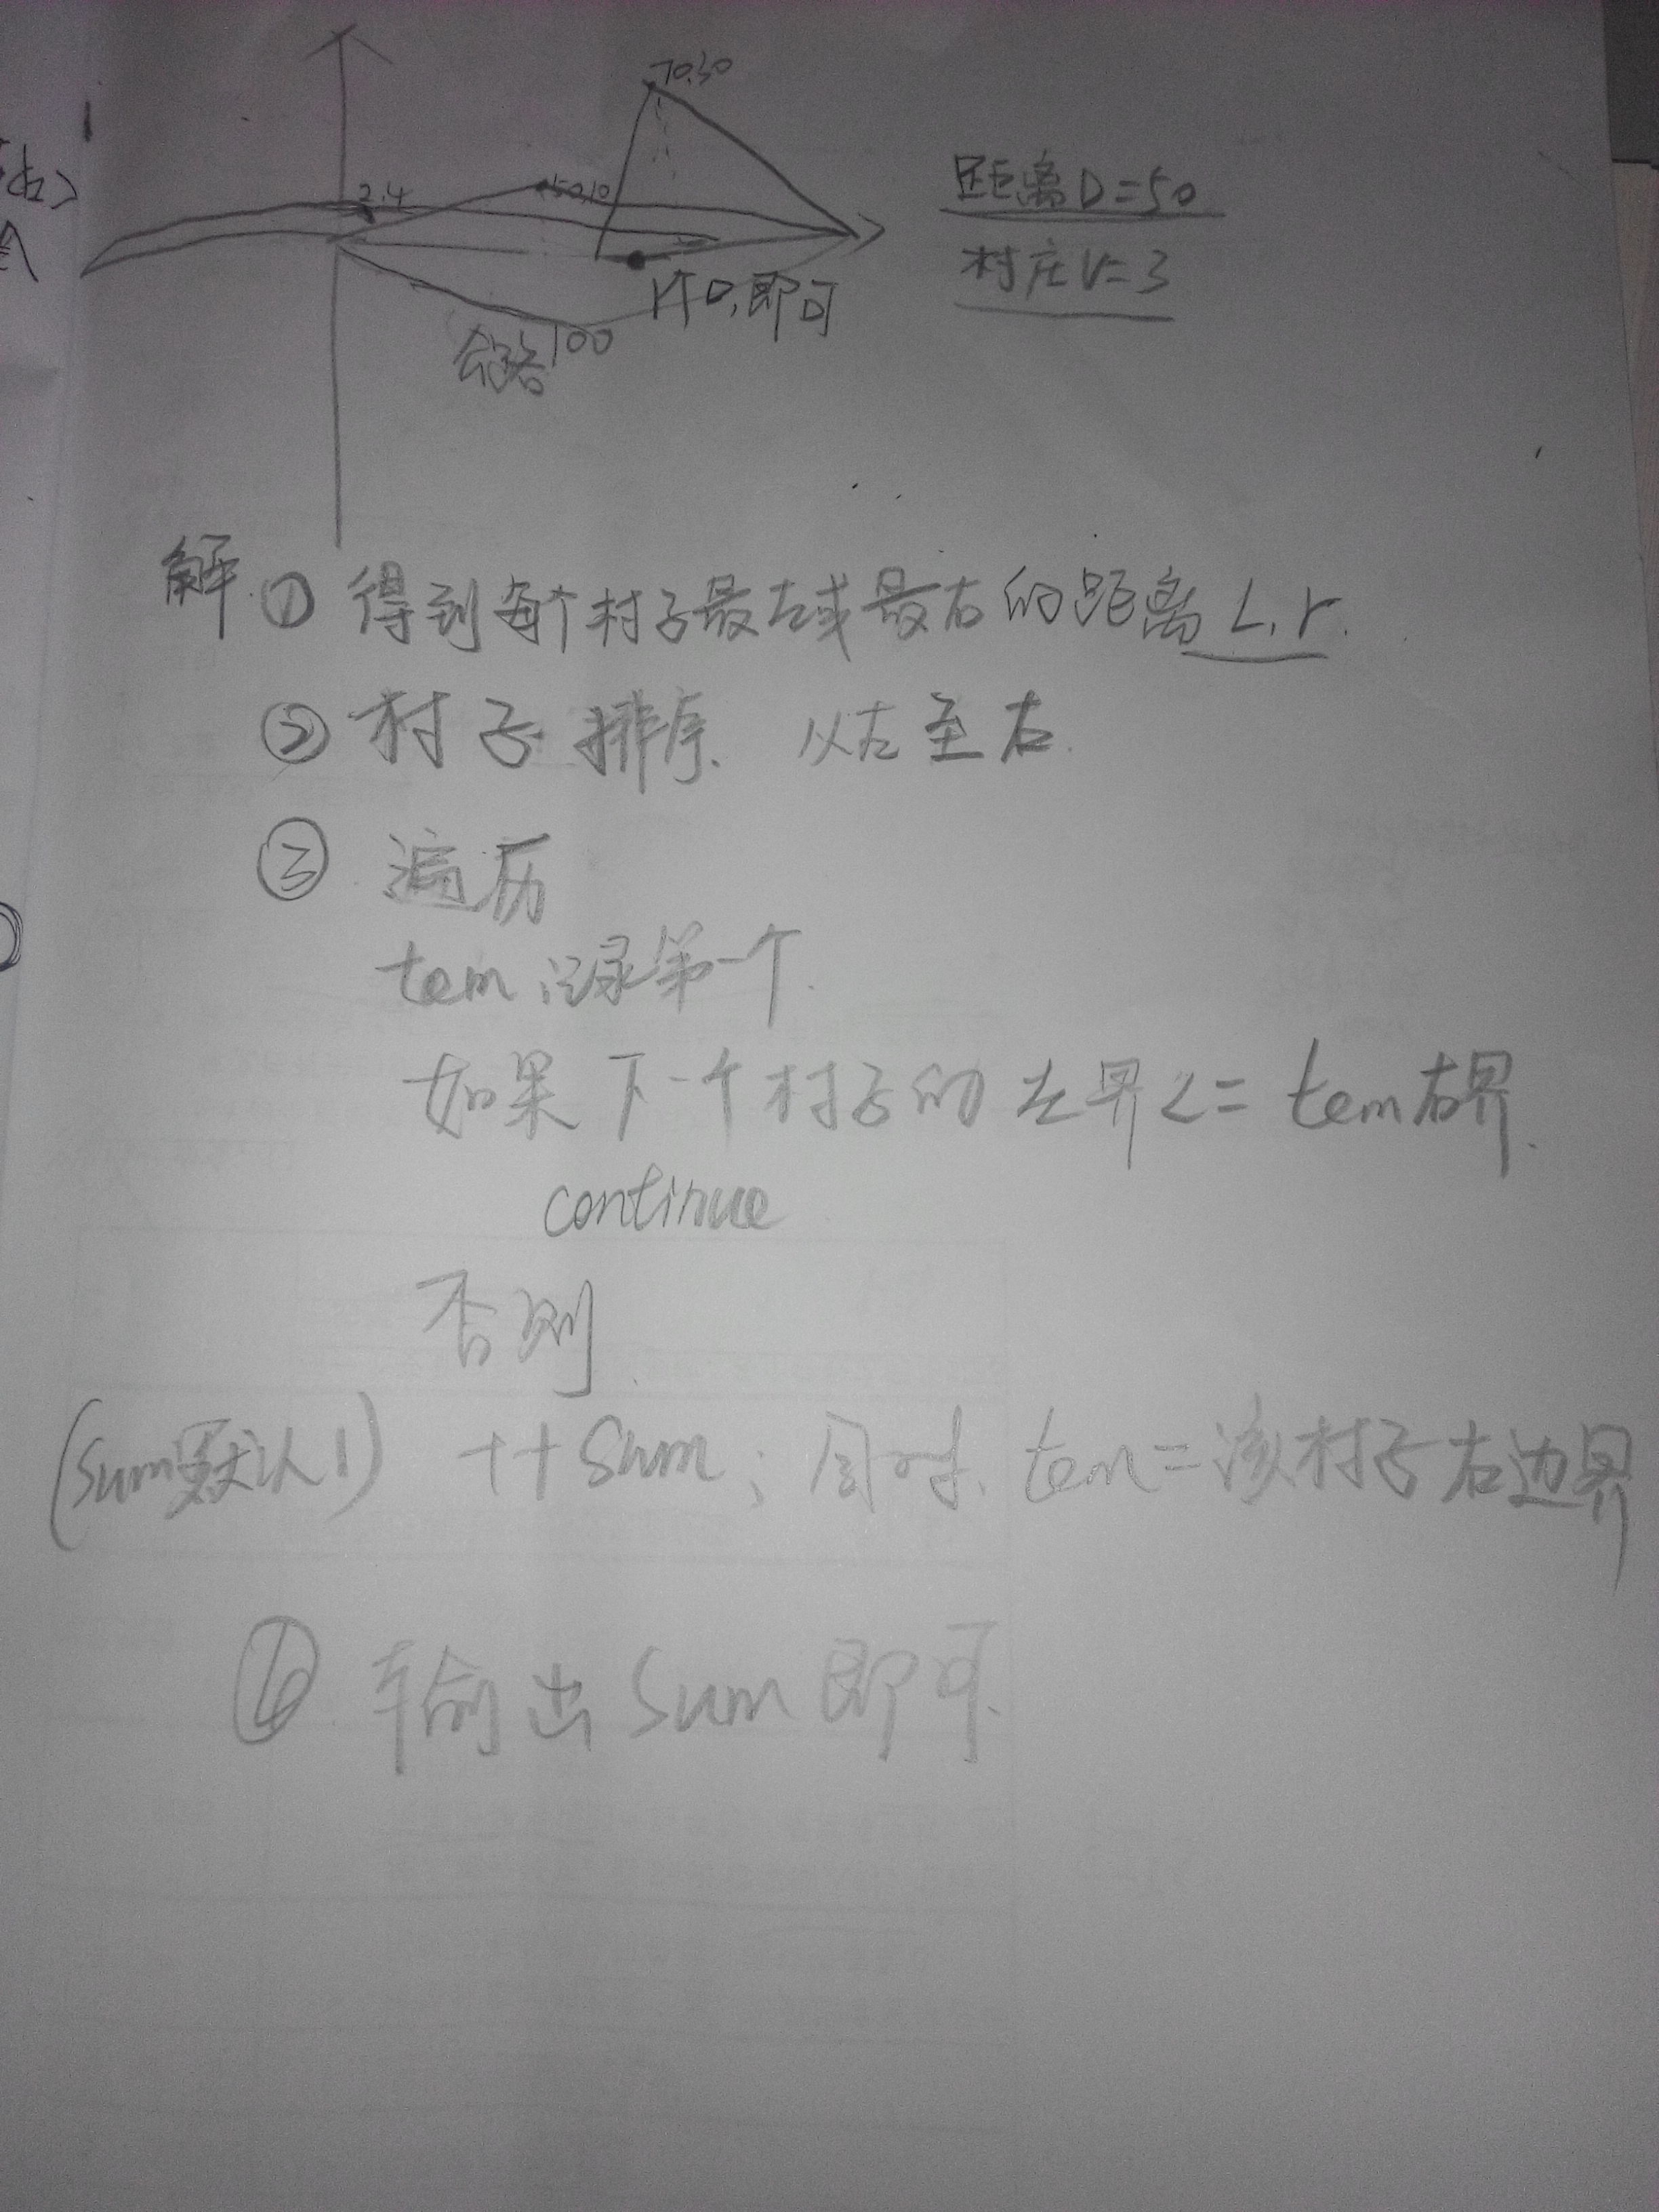 70.30
2.4
50,10
距离D=50
村庄V=3
1个D,即可
公路100
解.① 得到每个村子最左或最右的距离L,r.
② 村子排序. 以左至右.
③ 遍历
tem记录第一个.
如果下一个村子的左界<=tem右界.
continue
否则
(sum默认1) ++sum; 同时. tem=该村子右边界
④ 输出sum即可.